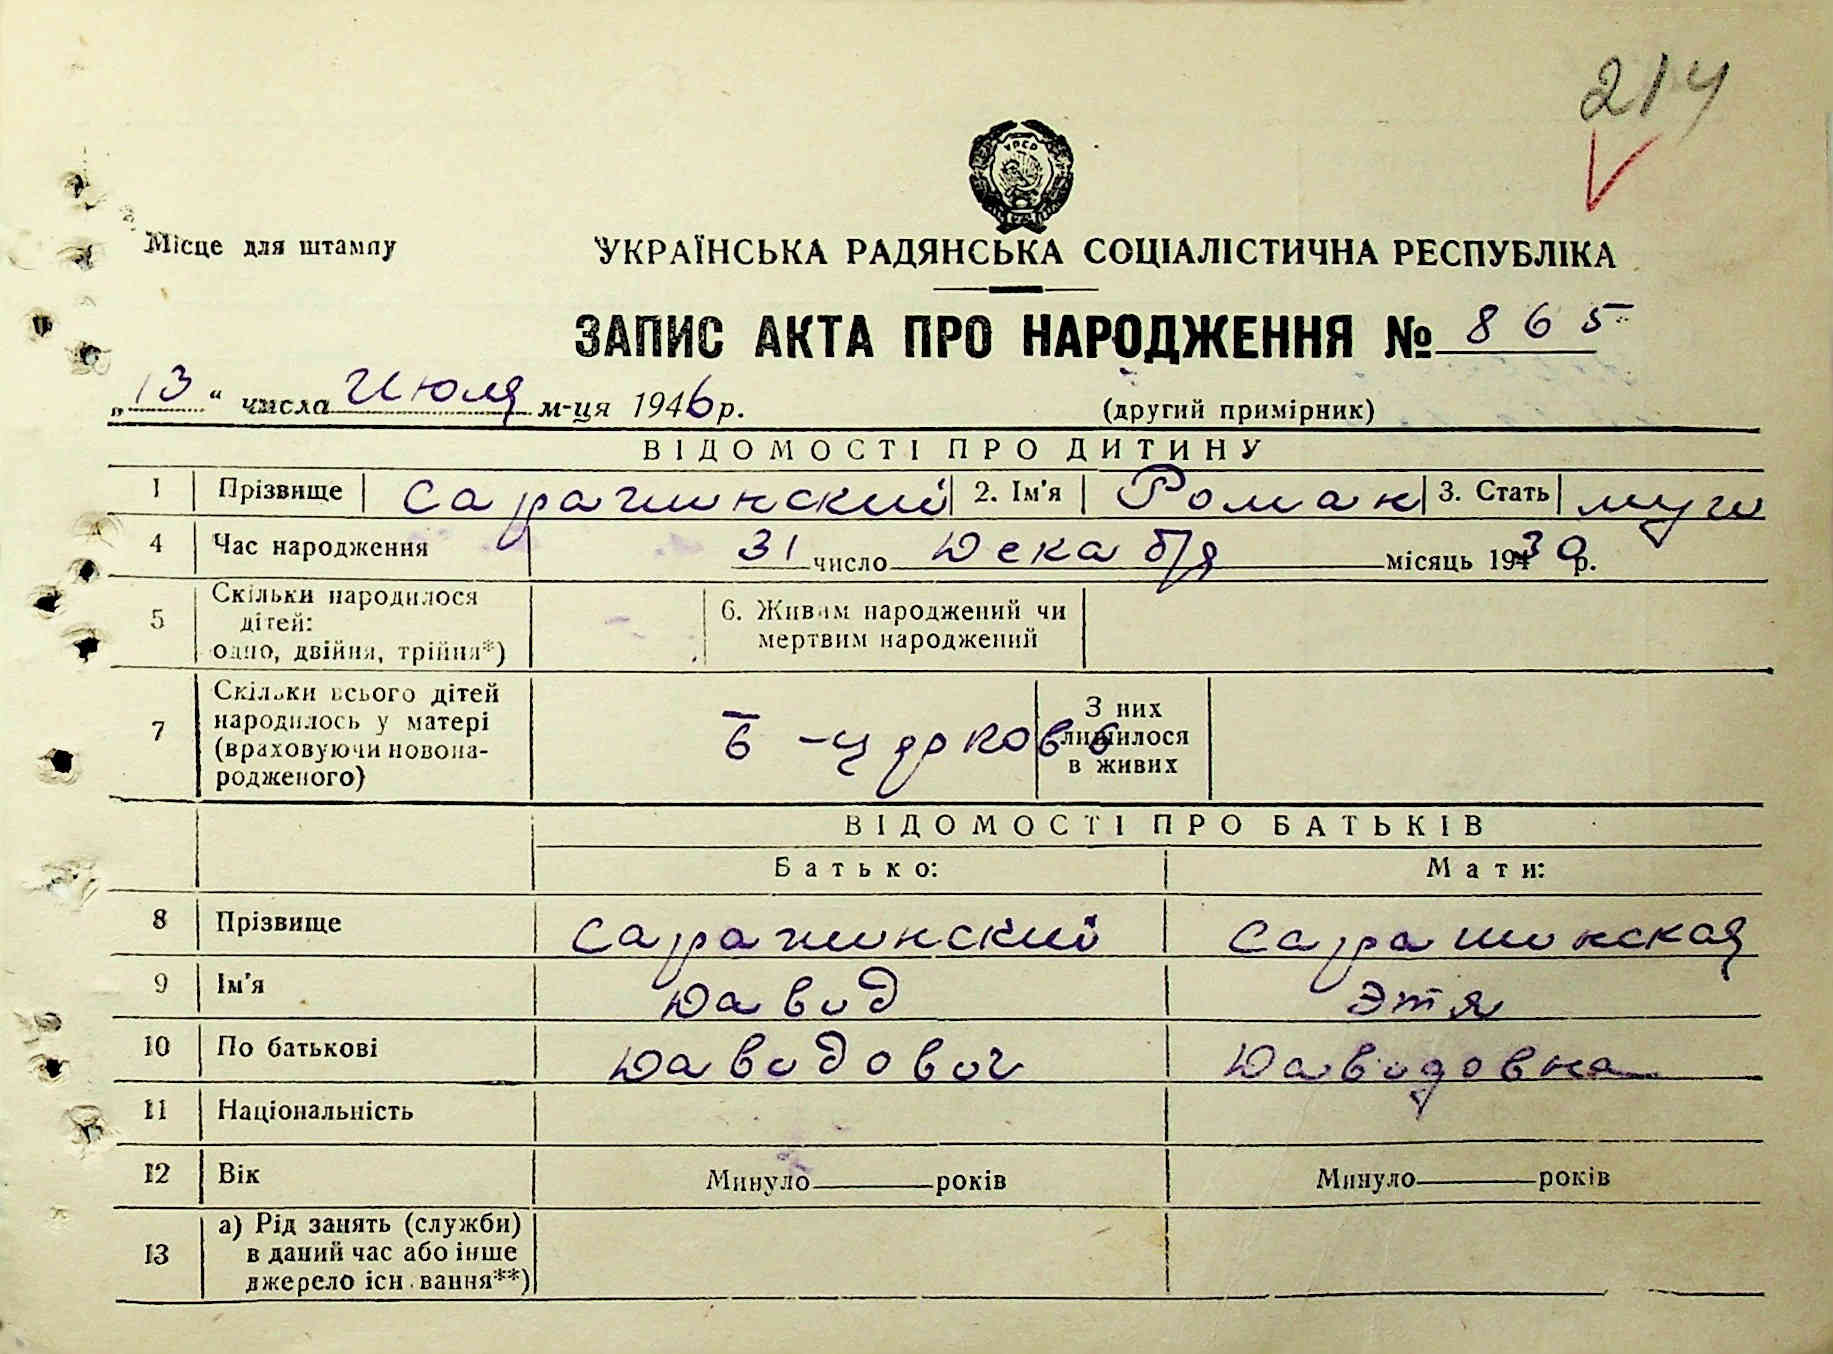 214
УРСР
Місце для штампу
УКРАЇНСЬКА РАДЯНСЬКА СОЦІАЛІСТИЧНА РЕСПУБЛІКА
ЗАПИС АКТА ПРО НАРОДЖЕННЯ № 865
„13“ числа Июля м-ця 1946 р.
(другий примірник)
ВІДОМОСТІ ПРО ДИТИНУ
1 Прізвище Сарачинский 2. Ім'я Роман 3. Стать муж
4 Час народження 31 число Декабря місяць 1930 р.
5 Скільки народилося дітей: одно, двійня, трійня*)
6. Живим народжений чи мертвим народжений
7 Скільки всього дітей народилось у матері (враховуючи новонародженого) Б-Церков
З них лишилося в живих
ВІДОМОСТІ ПРО БАТЬКІВ
Батько: Мати:
8 Прізвище
9 Ім'я Давид Этя
10 По батькові Давидович Давидовна
11 Національність
12 Вік Минуло років Минуло років
13 а) Рід занять (служби) в даний час або інше джерело існування**)